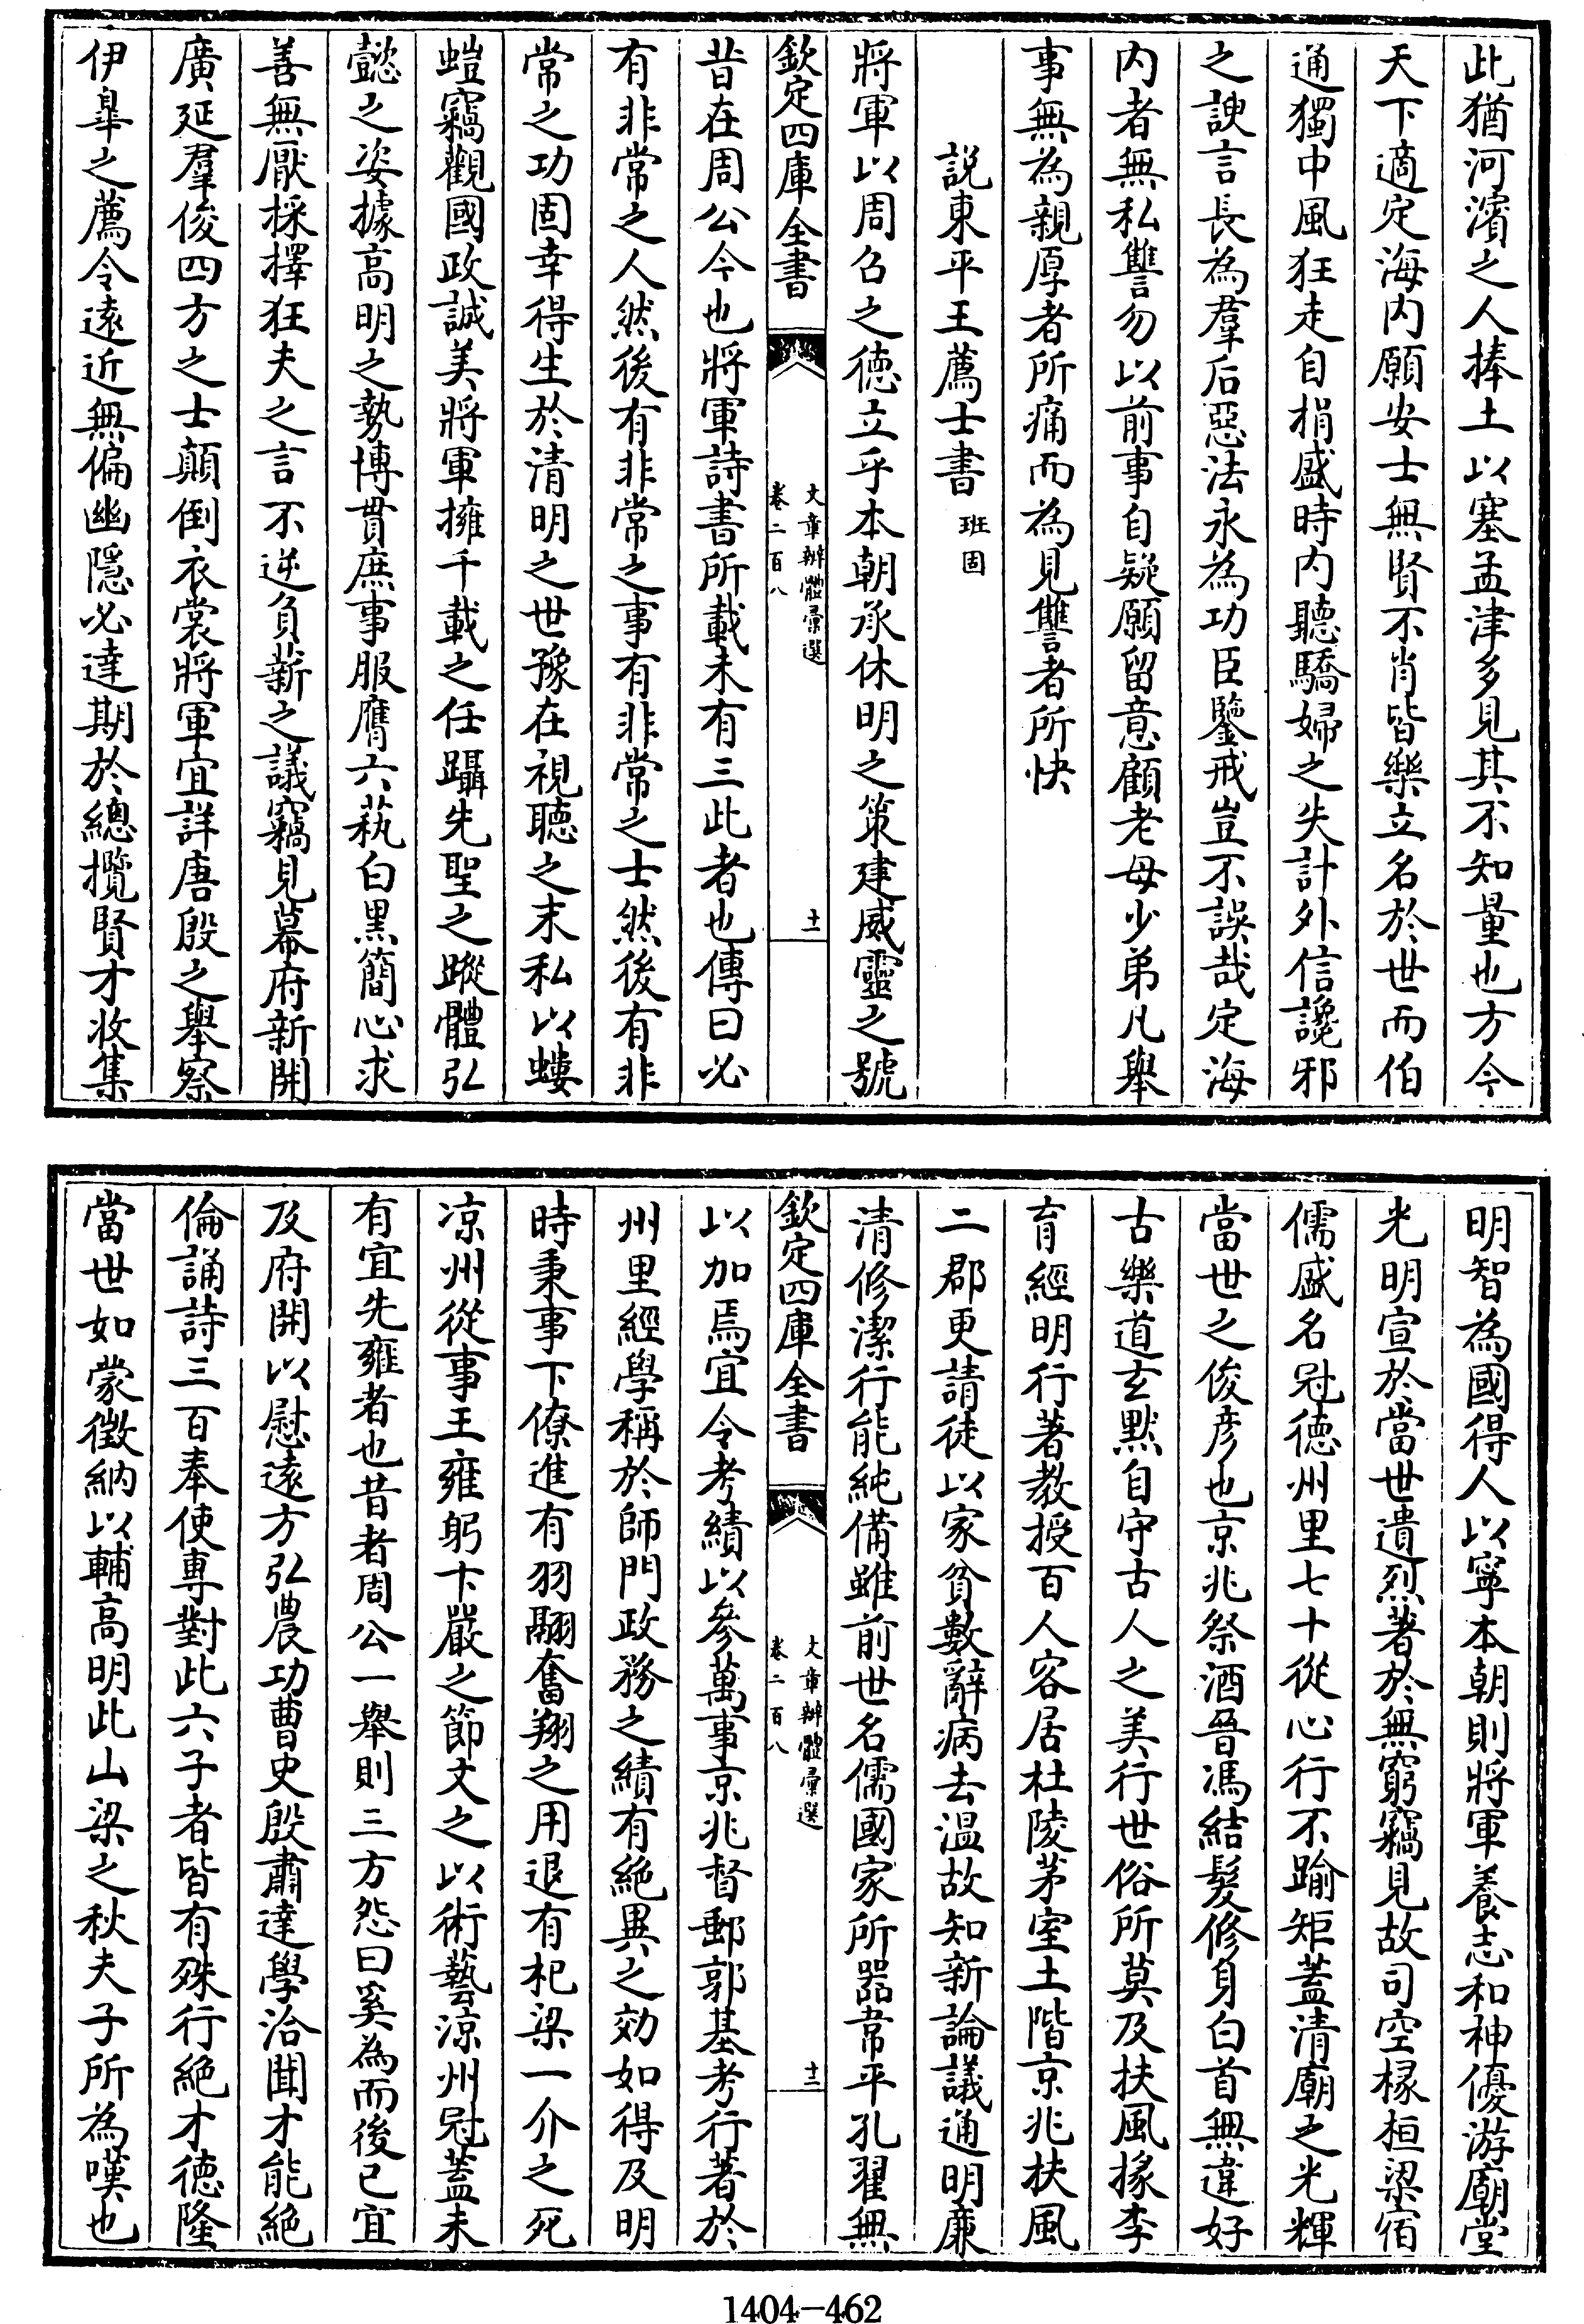 此猶河濱之人捧土以塞孟津多見其不知量也方今
天下適定海内願安士無賢不肖皆樂立名於世而伯
通獨中風狂走自捐盛時内聽驕婦之失計外信讒邪
之諛言長為羣后惡法永為功臣鑒戒豈不誤哉定海
内者無私讐勿以前事自疑願留意顧老母少弟凡舉
事無為親厚者所痛而為見讐者所快
說東平王薦士書 班固
將軍以周召之徳立乎本朝承休明之策建威靈之號
欽定四庫全書
文章辨體彚選
卷二百八
十一
昔在周公今也將軍詩書所載未有三此者也傳曰必
有非常之人然後有非常之事有非常之士然後有非
常之功固幸得生於清明之世豫在視聽之末私以螻
螘竊觀國政誠美將軍擁千載之任躡先聖之蹤體弘
懿之姿據高明之勢博貫庶事服膺六蓺白黒簡心求
善無厭採擇狂夫之言不逆負薪之議竊見幕府新開
廣延羣俊四方之士顛倒衣裳將軍宜詳唐殷之舉察
伊臯之薦令遠近無偏幽隱必達期於總攬賢才收集
明智為國得人以寧本朝則將軍養志和神優游廟堂
光明宣於當世遺烈著於無窮竊見故司空椽桓梁宿
儒盛名冠徳州里七十從心行不踰矩蓋清廟之光輝
當世之俊彦也京兆祭酒晉馮結髮修身白首無違好
古樂道玄默自守古人之美行世俗所莫及扶風掾李
育經明行著教授百人客居杜陵茅室土階京兆扶風
二郡更請徒以家貧數辭病去温故知新論議通明廉
清修潔行能純備雖前世名儒國家所器韋平孔翟無
欽定四庫全書
文章辨體彚選
卷二百八
十二
以加焉宜令考績以參萬事京兆督郵郭基孝行著於
州里經學稱於師門政務之績有絶異之効如得及明
時秉事下僚進有羽翮奮翔之用退有杞梁一介之死
凉州從事王雍躬卞嚴之節文之以術藝凉州冠蓋未
有宜先雍者也昔者周公一舉則三方怨曰奚為而後已宜
及府開以慰遠方弘農功曹史殷肅達學洽聞才能絶
倫誦詩三百奉使專對此六子者皆有殊行絶才徳隆
當世如蒙徴納以輔高明此山梁之秋夫子所為嘆也
1404-462